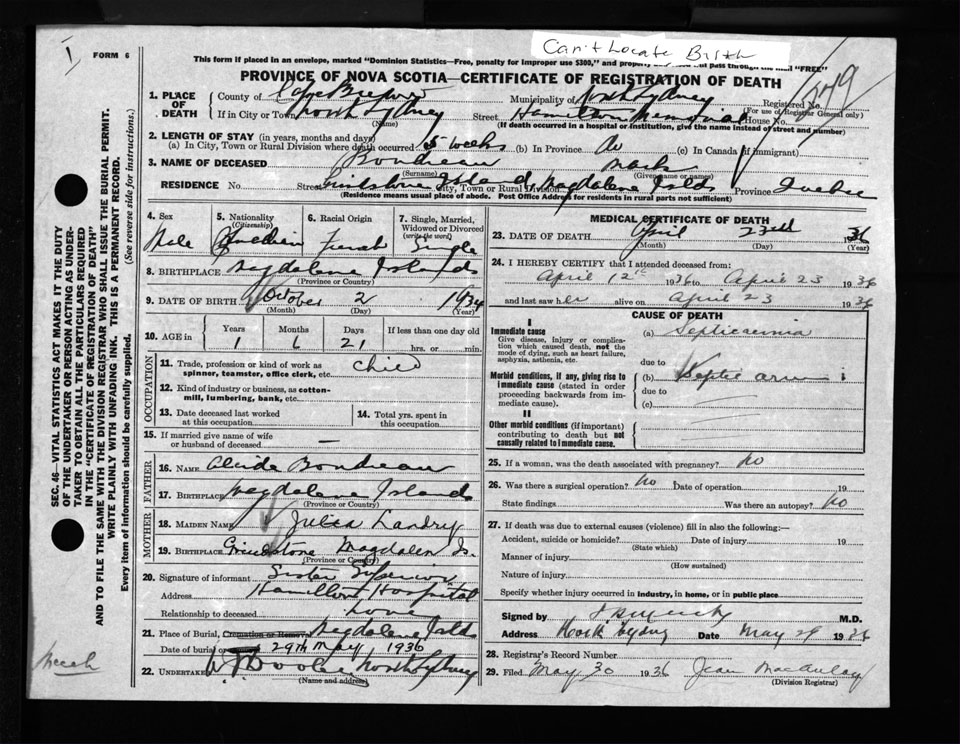 Can't Locate Birth
FORM 6
This form if placed in an envelope, marked "Dominion Statistics—Free, penalty for improper use $300," and property pass through the mail "FREE"
PROVINCE OF NOVA SCOTIA—CERTIFICATE OF REGISTRATION OF DEATH
1. PLACE OF DEATH County of Cape Breton Municipality of North Sydney Registered No.
(For use of Registrar General only)
If in City or Town North Sydney Street Hamilton Memorial House No.
(Name) (If death occurred in a hospital or institution, give the name instead of street and number)
2. LENGTH OF STAY (in years, months and days)
(a) In City, Town or Rural Division where death occurred 5 weeks (b) In Province do (c) In Canada (if immigrant)
3. NAME OF DECEASED Boudreau
(Surname) (Given name or names)
RESIDENCE No. Street Island City, Town or Rural Division Magdalene Islds Province Quebec
(Residence means usual place of abode. Post Office Address for residents in rural parts not sufficient)
4. Sex
Male
5. Nationality (Citizenship)
Canadian
6. Racial Origin
French
7. Single, Married, Widowed or Divorced (write the word)
Single
8. BIRTHPLACE Magdalene Islands
(Province or Country)
9. DATE OF BIRTH October 2 1934
(Month) (Day) (Year)
10. AGE in Years Months Days If less than one day old
1 6 21 hrs. or min.
OCCUPATION
11. Trade, profession or kind of work as spinner, teamster, office clerk, etc. Child
12. Kind of industry or business, as cotton-mill, lumbering, bank, etc.
13. Date deceased last worked at this occupation
14. Total yrs. spent in this occupation
15. If married give name of wife or husband of deceased —
FATHER
16. NAME Alcide Boudreau
17. BIRTHPLACE Magdalene Islands
(Province or Country)
MOTHER
18. MAIDEN NAME Julia Landry
19. BIRTHPLACE Grindstone Magdalen Is.
(Province or Country)
20. Signature of informant Sister Superior
Address Hamilton Hospital
Relationship to deceased none
21. Place of Burial, Cremation or Removal Magdalene Islds
Date of burial 29th May 1936
22. UNDERTAKER North Sydney
(Name and address)
MEDICAL CERTIFICATE OF DEATH
23. DATE OF DEATH April 23rd 36
(Month) (Day) (Year)
24. I HEREBY CERTIFY that I attended deceased from:
April 12th 1936 to April 23 1936
and last saw her alive on April 23 1936
CAUSE OF DEATH
I
Immediate cause
Give disease, injury or complication which caused death, not the mode of dying, such as heart failure, asphyxia, asthenia, etc.
(a) Septicaemia
due to
Morbid conditions, if any, giving rise to immediate cause (stated in order proceeding backwards from immediate cause).
(b) Septic arm
due to
(c)
II
Other morbid conditions (if important) contributing to death but not causally related to immediate cause.
25. If a woman, was the death associated with pregnancy? No
26. Was there a surgical operation? No Date of operation 19
State findings Was there an autopsy? No
27. If death was due to external causes (violence) fill in also the following:—
Accident, suicide or homicide? Date of injury 19
(State which)
Manner of injury
(How sustained)
Nature of injury
Specify whether injury occurred in industry, in home, or in public place
Signed by M.D.
Address North Sydney Date May 29 1936
28. Registrar's Record Number
29. Filed May 30 1936 Jean MacAulay
(Division Registrar)
SEC. 46—VITAL STATISTICS ACT MAKES IT THE DUTY
OF THE UNDERTAKER OR PERSON ACTING AS UNDERTAKER TO OBTAIN ALL THE PARTICULARS REQUIRED
IN THE "CERTIFICATE OF REGISTRATION OF DEATH"
AND TO FILE THE SAME WITH THE DIVISION REGISTRAR WHO SHALL ISSUE THE BURIAL PERMIT.
WRITE PLAINLY WITH UNFADING INK. THIS IS A PERMANENT RECORD.
Every item of information should be carefully supplied. (See reverse side for instructions.)